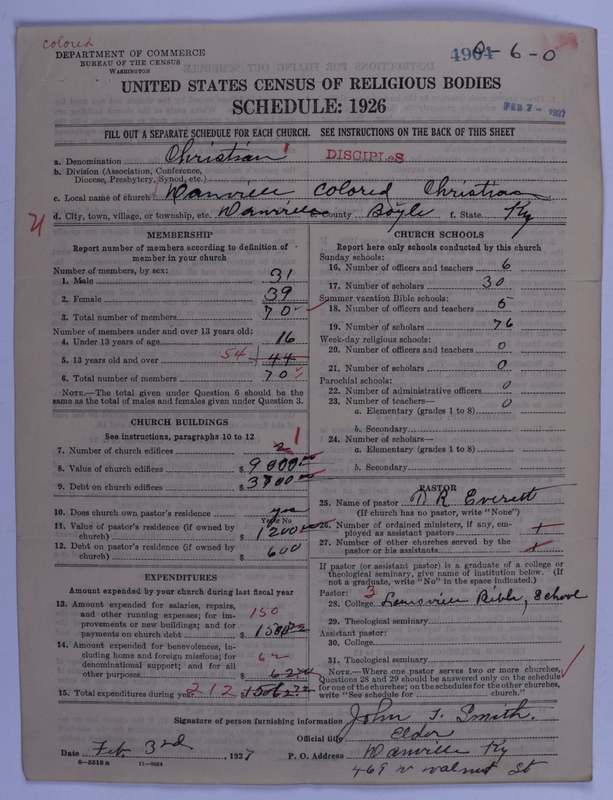 colored
DEPARTMENT OF COMMERCE
BUREAU OF THE CENSUS
WASHINGTON
4904 6-0
UNITED STATES CENSUS OF RELIGIOUS BODIES
SCHEDULE: 1926
FEB 7 - 1927
FILL OUT A SEPARATE SCHEDULE FOR EACH CHURCH. SEE INSTRUCTIONS ON THE BACK OF THIS SHEET
a. Denomination Christian DISCIPLES
b. Division (Association, Conference,
Diocese, Presbytery, Synod, etc.)
c. Local name of church Danville Colored Christian
d. City, town, village, or township, etc. Danville e. County Boyle f. State Ky
MEMBERSHIP
Report number of members according to definition of
member in your church
Number of members, by sex:
1. Male 31
2. Female 39
3. Total number of members 70
Number of members under and over 13 years old:
4. Under 13 years of age 16
5. 13 years old and over 54 44
6. Total number of members 70
NOTE.—The total given under Question 6 should be
same as the total of males and females given under Question 3.
CHURCH BUILDINGS
See instructions, paragraphs 10 to 12
7. Number of church edifices 2 1
8. Value of church edifices $ 9000.00
9. Debt on church edifices $ 3700.00
10. Does church own pastor's residence yes
Yes or No
11. Value of pastor's residence (if owned by
church) $ 1200.00
12. Debt on pastor's residence (if owned by
church) $ 600
EXPENDITURES
Amount expended by your church during last fiscal year
13. Amount expended for salaries, repairs,
and other running expenses; for im-
provements or new buildings; and for
payments on church debt 150 $
14. Amount expended for benevolences, in-
cluding home and foreign missions; for
denominational support; and for all
other purposes 62 $
15. Total expenditures during year 212 $
CHURCH SCHOOLS
Report here only schools conducted by this church
Sunday schools:
16. Number of officers and teachers 6
17. Number of scholars 30
Summer vacation Bible schools:
18. Number of officers and teachers 5
19. Number of scholars 76
Week-day religious schools:
20. Number of officers and teachers 0
21. Number of scholars 0
Parochial schools:
22. Number of administrative officers 0
23. Number of teachers— 0
a. Elementary (grades 1 to 8)
b. Secondary
24. Number of scholars—
a. Elementary (grades 1 to 8)
b. Secondary
PASTOR
25. Name of pastor D R Everett
(If church has no pastor, write "None")
26. Number of ordained ministers, if any, em-
ployed as assistant pastors
27. Number of other churches served by the
pastor or his assistants
If pastor (or assistant pastor) is a graduate of a college or
theological seminary, give name of institution below. (If
not a graduate, write "No" in the space indicated.)
Pastor: 3
28. College Louisville Bible, School
29. Theological seminary
Assistant pastor:
30. College
31. Theological seminary
NOTE.—Where one pastor serves two or more churches,
Questions 28 and 29 should be answered only on the schedule
for one of the churches; on the schedules for the other churches,
write "See schedule for church."
Signature of person furnishing information John T. Smith.
Official title Elder
Date Feb. 3rd, 1927 P. O. Address Danville Ky
8-5518a 11-9064 469 W Walnut St